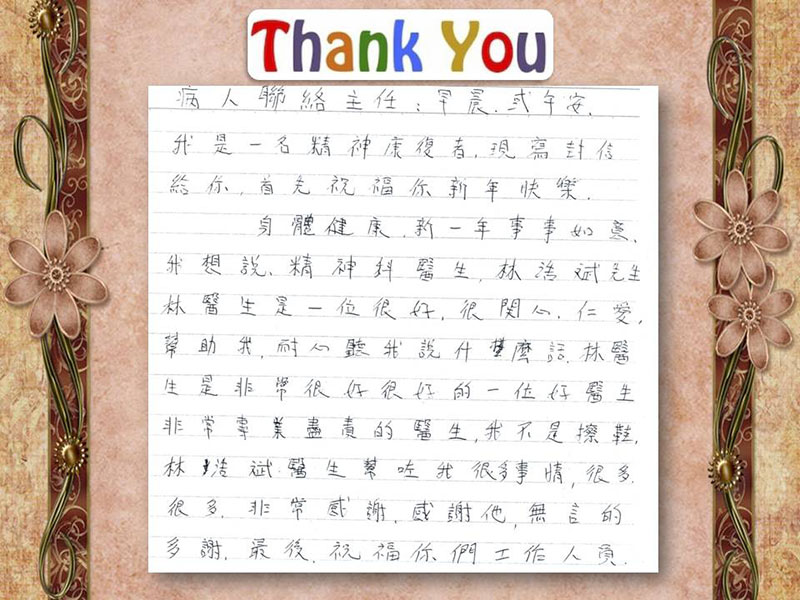 Thank You
病人聯絡主任：早晨.或午安.
我是一名精神康復者.現寫封信
給你.首先祝福你新年快樂.
身體健康.新一年事事如意.
我想說.精神科醫生.林浩斌先生
林醫生是一位很好.很関心.仁愛.
幫助我.耐心聽我說什麼話.林醫
生是非常很好很好的一位好醫生
非常專業盡責的醫生.我不是擦鞋.
林浩斌醫生幫咗我很多事情,很多.
很多.非常感謝.感謝他,無言的
多謝.最後.祝福你們工作人員.